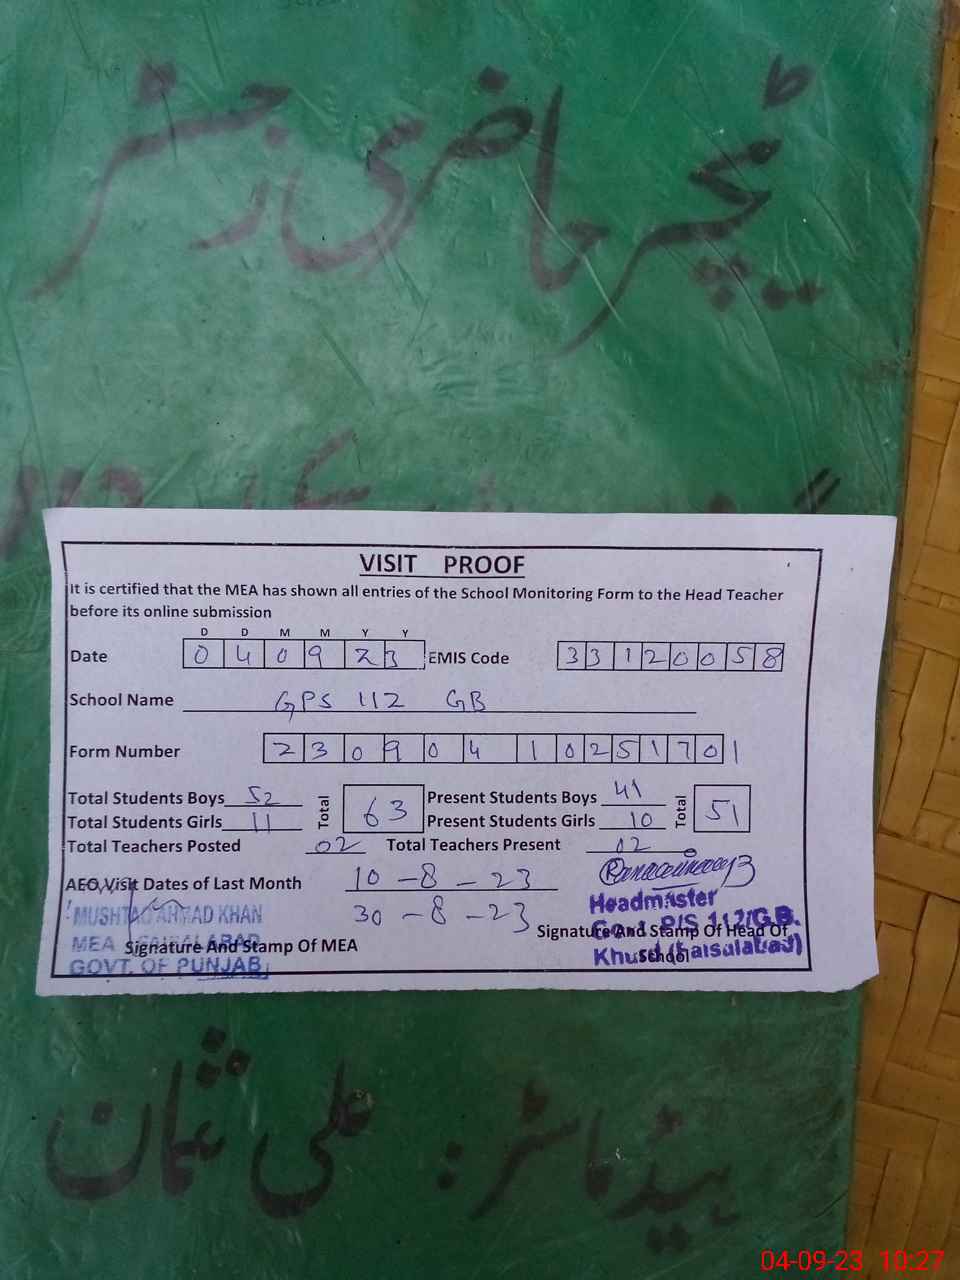 ٹیچر حاضری رجسٹر
VISIT PROOF
It is certified that the MEA has shown all entries of the School Monitoring Form to the Head Teacher
before its online submission
D D M M Y Y
Date 0 4 0 9 2 3 EMIS Code 3 3 1 2 0 0 5 8
School Name GPS 112 GB
Form Number 2 3 0 9 0 4 1 0 2 5 1 7 0 1
Total Students Boys 52 Total 63 Present Students Boys 41 Total 51
Total Students Girls 11 Present Students Girls 10
Total Teachers Posted 02 Total Teachers Present 02
AEO Visit Dates of Last Month 10-8-23
30-8-23
MUSHTAQ AHMAD KHAN
MEA FAISALABAD
GOVT. OF PUNJAB
Signature And Stamp Of MEA
Headmaster
Govt. P/S 112/G.B.
Khurd (Faisalabad)
Signature And Stamp Of Head Of
School
ہیڈ ماسٹر: علی عثمان
04-09-23 10:27